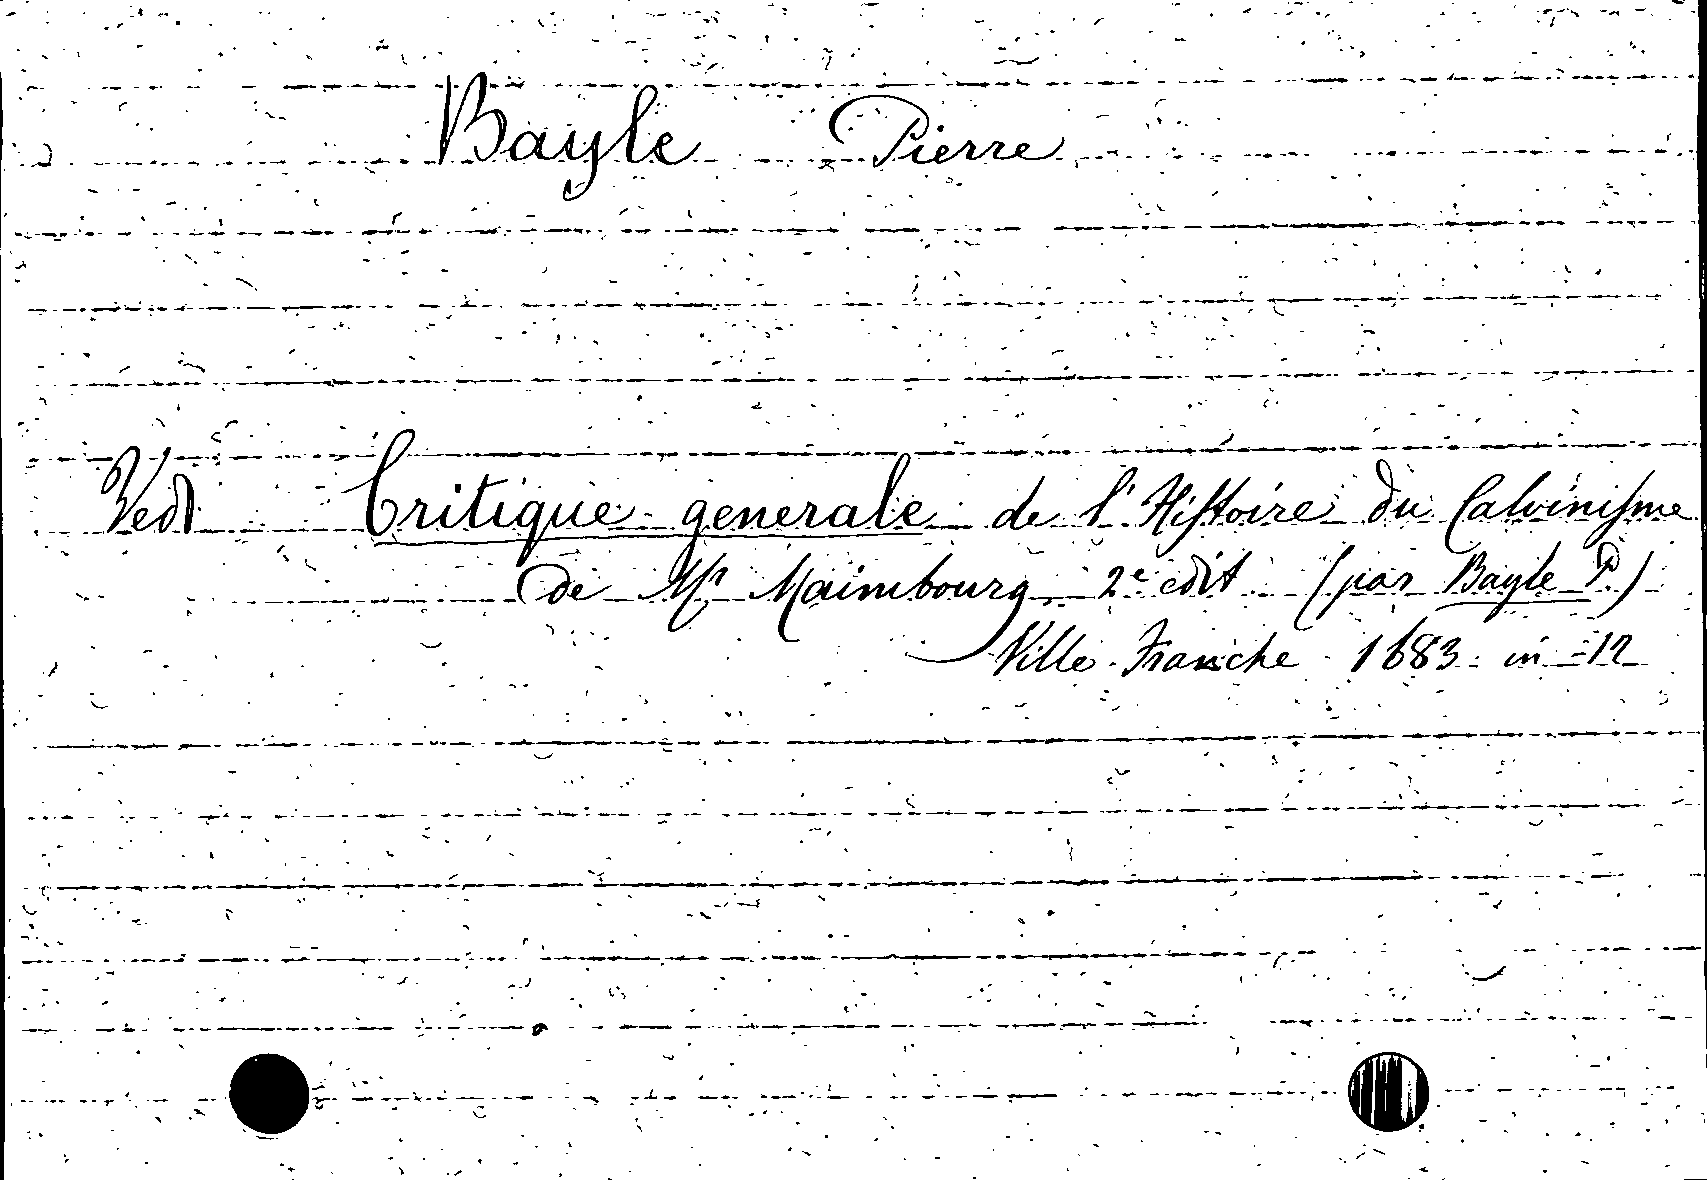 Bayle Pierre
Vedi Critique generale de l'Histoire du Calvinisme
de Mr Maimbourg 2e edit (par Bayle P.)
Ville-Franche 1683 in-12